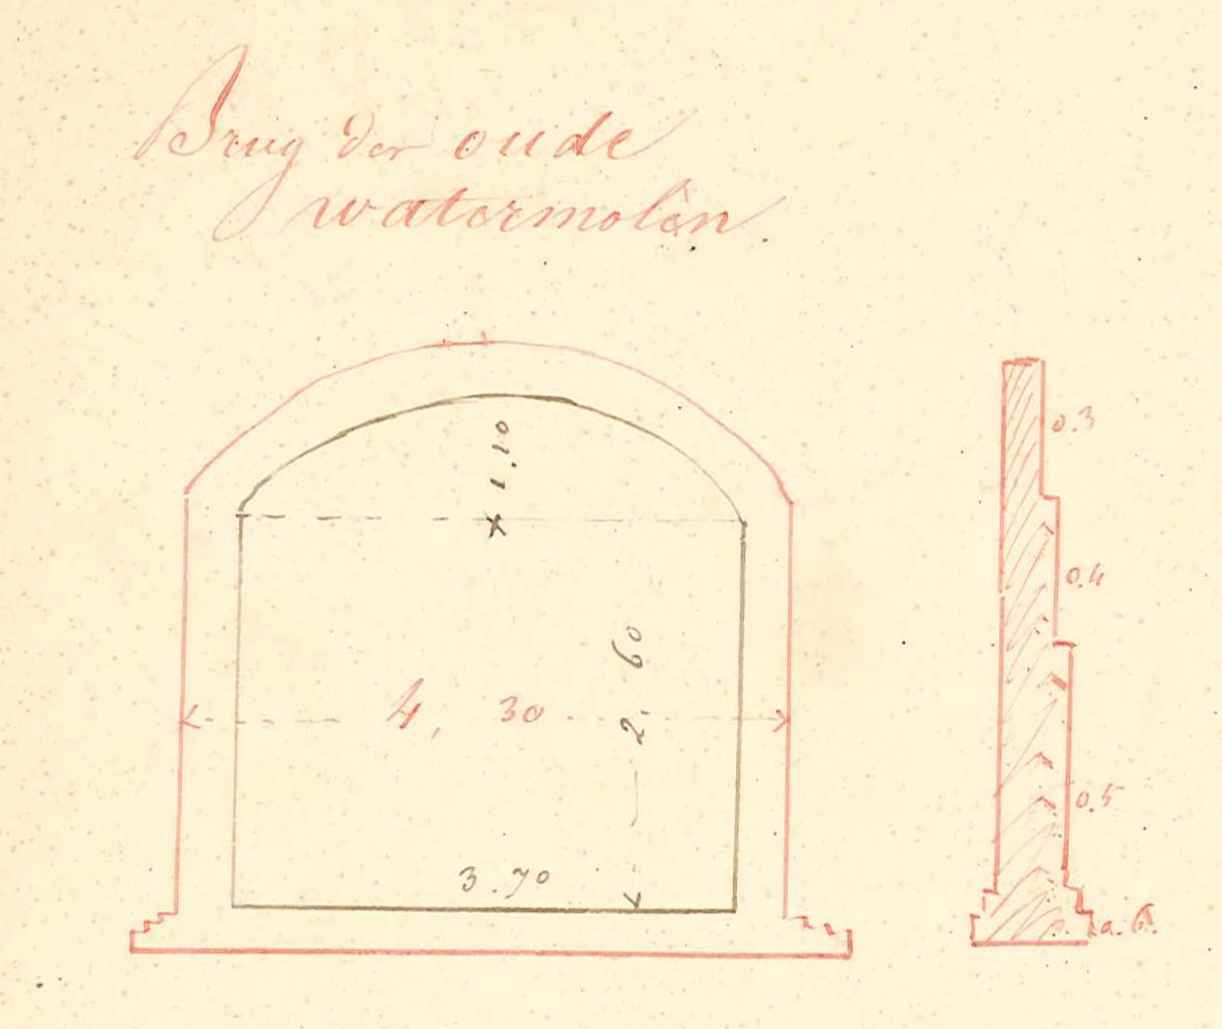 Brug der oude
watermolen.
1.10
4, 30
2. 60
3.70
0.3
0.4
0.5